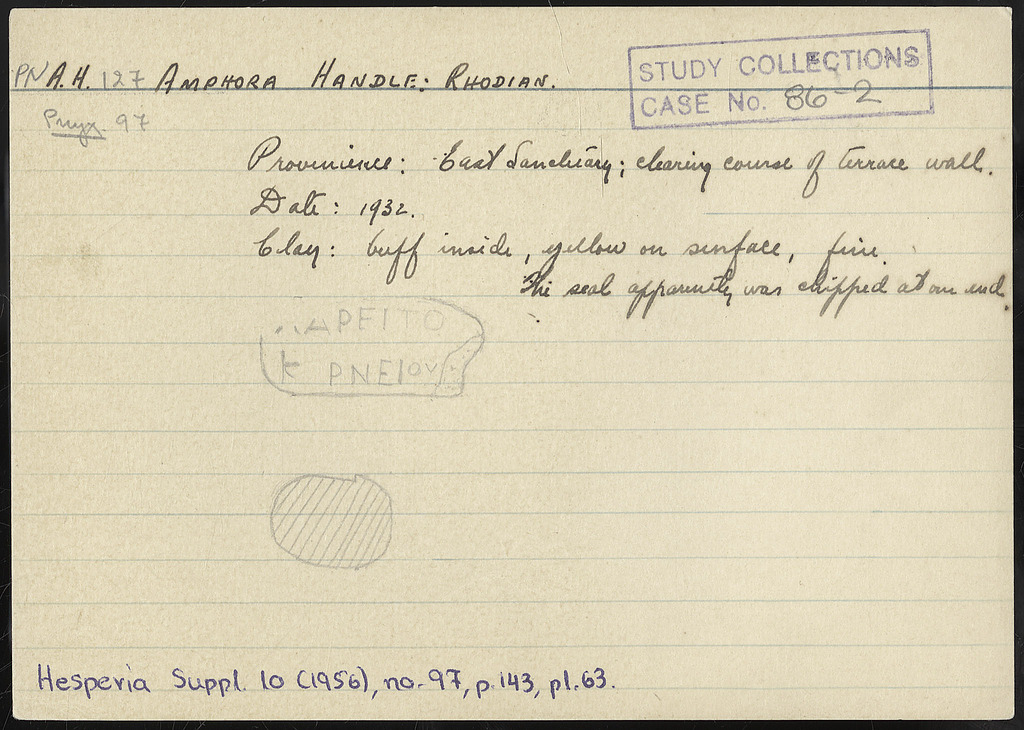 PN A.H. 127 AMPHORA HANDLE: RHODIAN.
STUDY COLLECTIONS
CASE No. 86-2
Pnyx 97
Provenience: East Sanctuary; clearing course of terrace wall.
Date: 1932.
Clay: buff inside, yellow on surface, fine.
The seal apparently was chipped at one end.
..ΑΡΕΙΤΟ
Κ ΡΝΕΙΟΥ
Hesperia Suppl. 10 (1956), no. 97, p. 143, pl. 63.